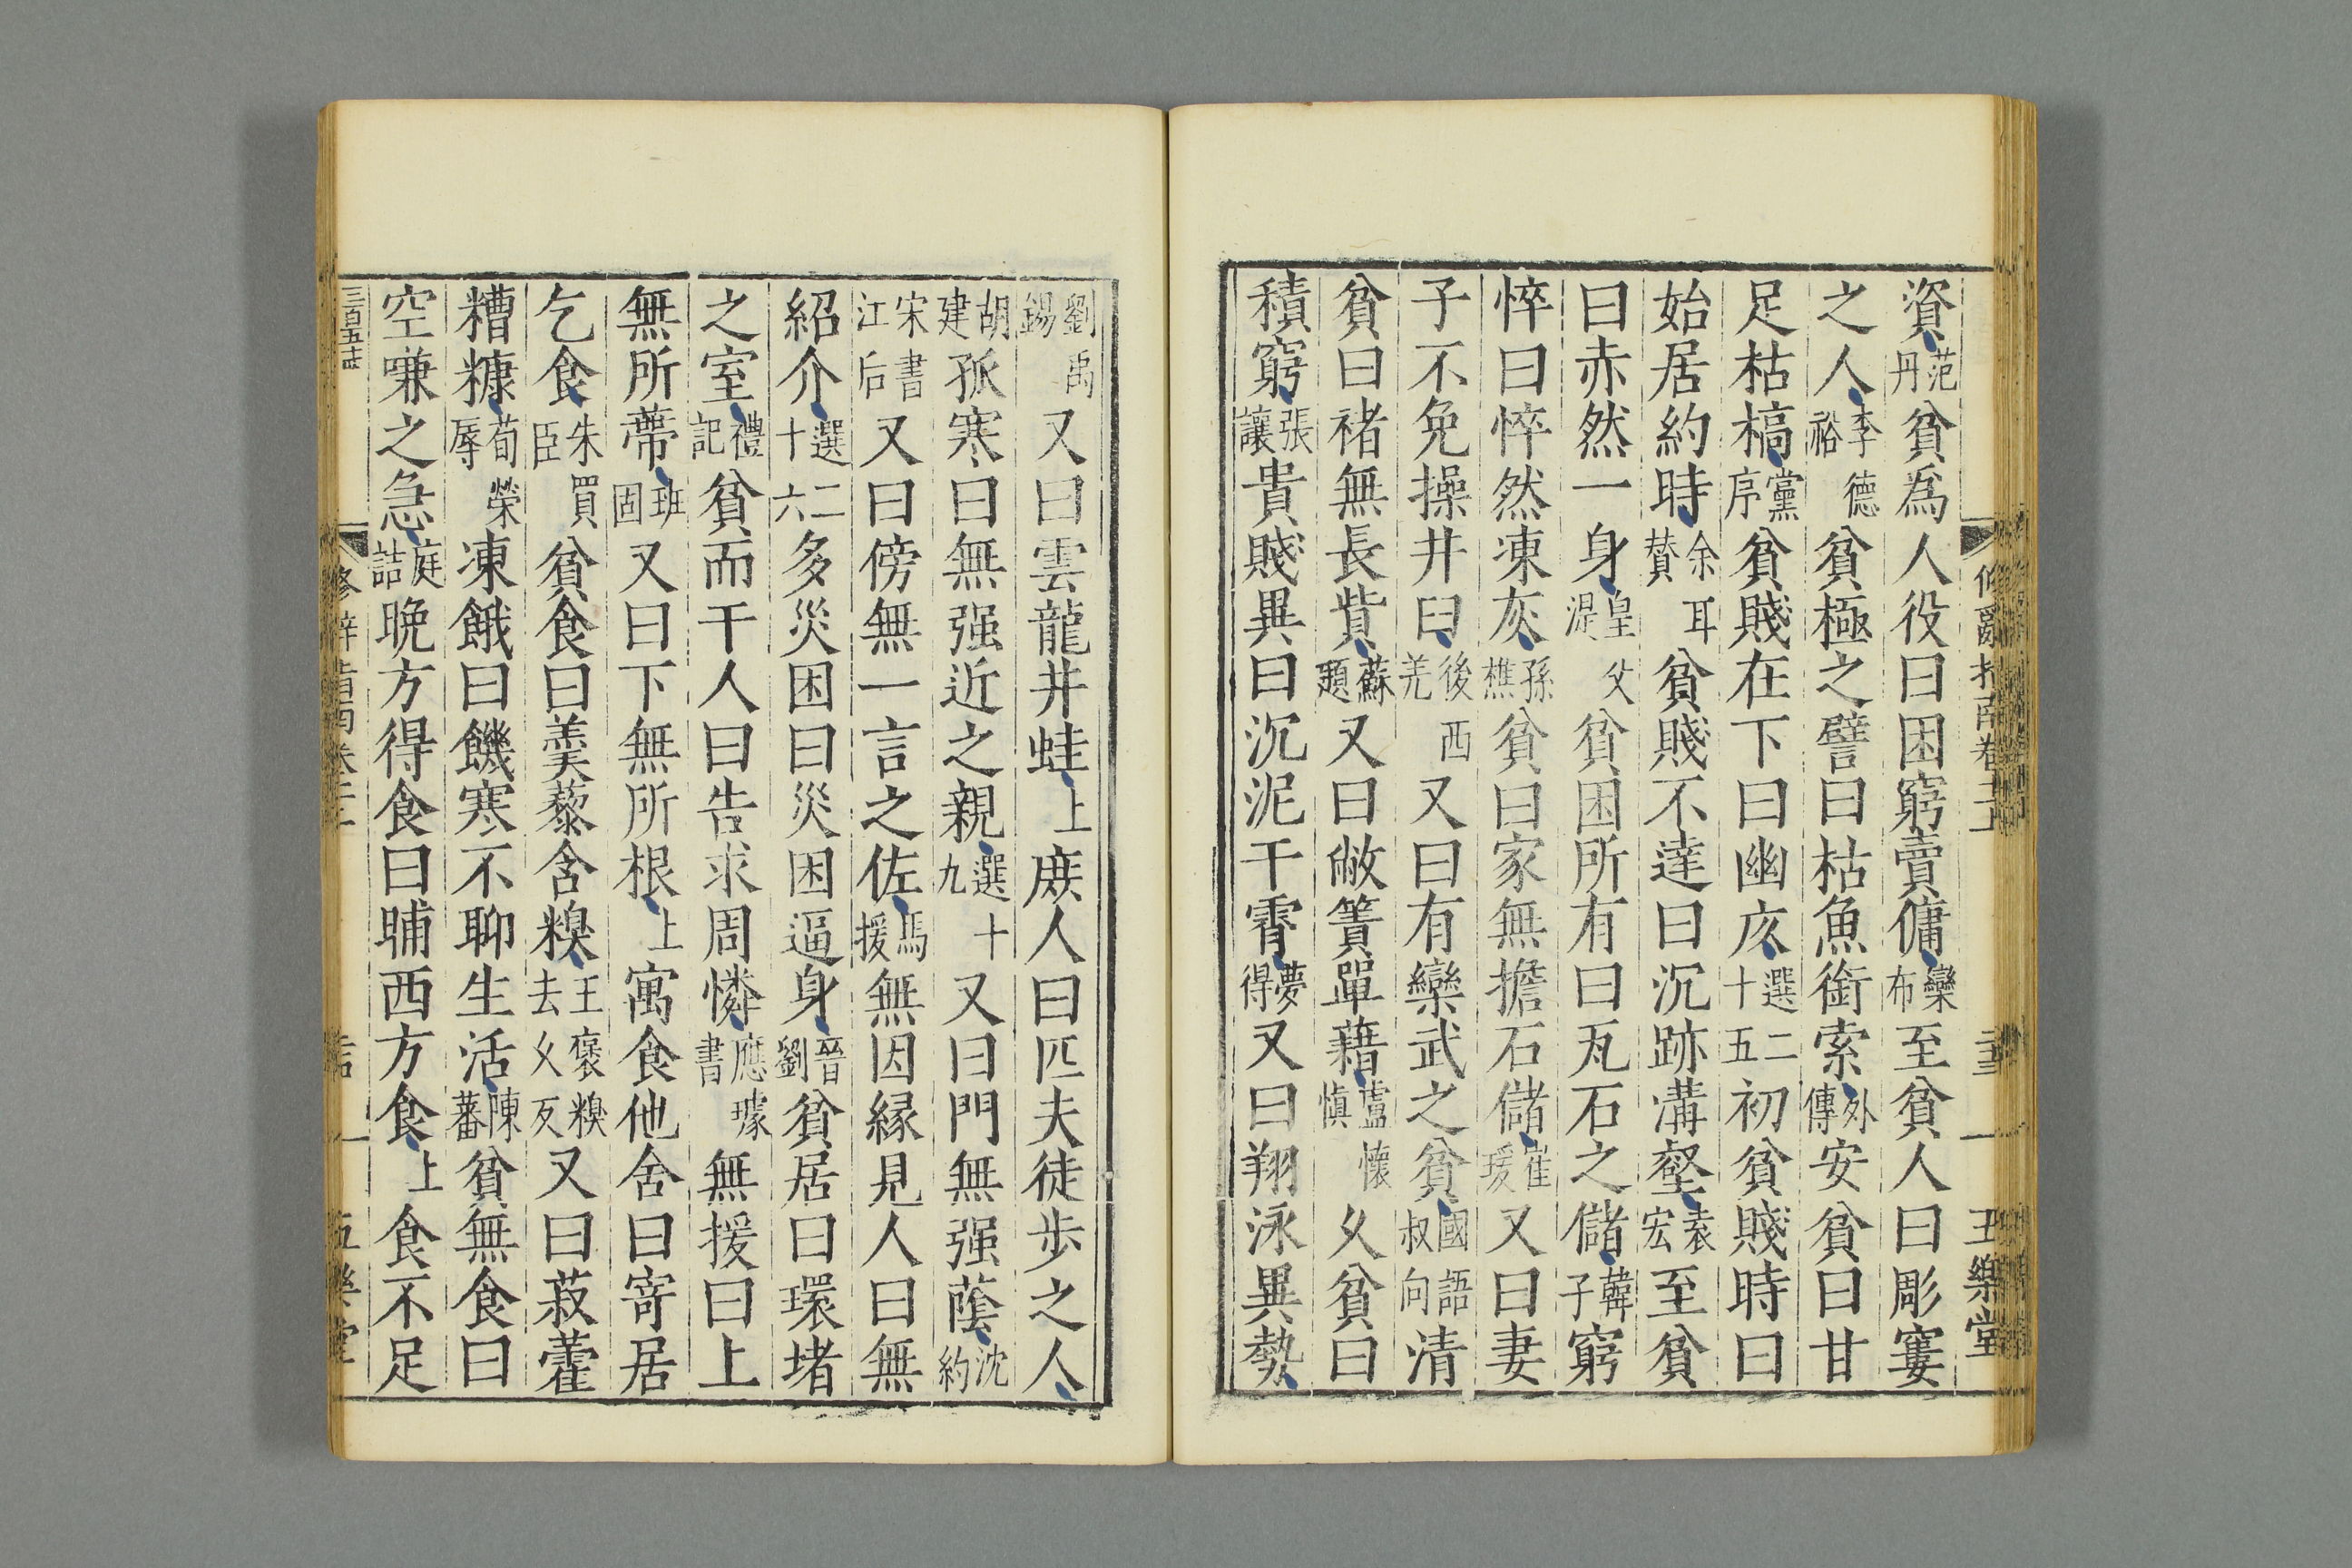 資范丹貧爲人役曰困窮賣傭欒布至貧人曰彫窶
之人李德裕貧極之譬曰枯魚銜索外傳安貧曰甘
足枯槁黨序貧賤在下曰幽仄選二十五初貧賤時曰
始居約時余耳賛貧賤不達曰沉跡溝壑袁宏至貧
曰赤然一身皇父湜貧困所有曰瓦石之儲韓子窮
悴曰悴然凍灰孫樵貧曰家無擔石儲崔瑗又曰妻
子不免操井臼後西羌又曰有欒武之貧國語叔向清
貧曰禇無長貲蘇題又曰敝簀單藉盧懷慎久貧曰
積窮張讓貴賤異曰沉泥干霄夢得又曰翔泳異勢
劉禹錫又曰雲龍井蛙上庶人曰匹夫徒步之人
胡建孤寒曰無强近之親選十九又曰門無强蔭沈約
宋書江后又曰傍無一言之佐馬援無因緣見人曰無
紹介選二十六多災困曰災困逼身晉劉貧居曰環堵
之室禮記貧而干人曰告求周憐應璩書無援曰上
無所蔕班固又曰下無所根上寓食他舍曰寄居
乞食朱買臣貧食曰羮藜含糗王褒糗去久反又曰菽藿
糟糠荀榮辱凍餓曰饑寒不聊生活陳蕃貧無食曰
空嗛之急庭詰晚方得食曰晡西方食上食不足